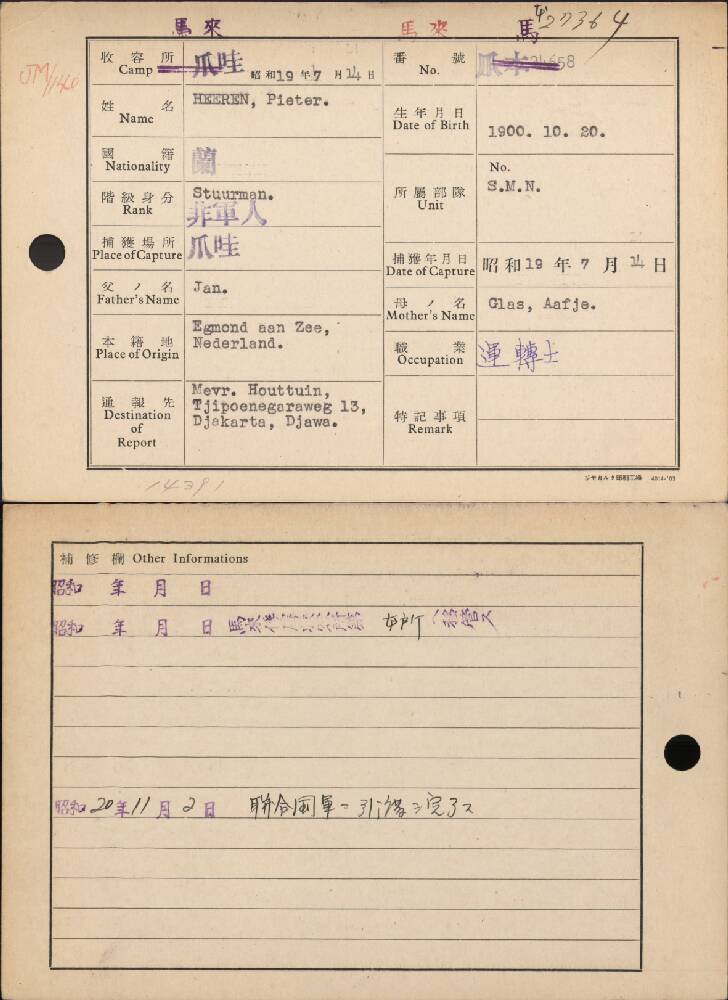 馬來 馬來 馬 27364
JM/140
收容所 Camp 爪哇 昭和19年7月14日
番號 No. 爪本 24658
姓名 Name HEEREN, Pieter.
生年月日 Date of Birth 1900. 10. 20.
國籍 Nationality 蘭
階級身分 Rank Stuurman.
非軍人
所屬部隊 Unit No.
S.M.N.
捕獲場所 Place of Capture 爪哇
捕獲年月日 Date of Capture 昭和19年7月14日
父ノ名 Father's Name Jan.
母ノ名 Mother's Name Glas, Aafje.
本籍地 Place of Origin Egmond aan Zee,
Nederland.
職業 Occupation 運轉士
通報先 Destination of Report Mevr. Houttuin,
Tjipoenegaraweg 13,
Djakarta, Djawa.
特記事項 Remark
14391
補修欄 Other Informations
昭和 年 月 日
昭和 年 月 日 馬來 ヘ移管ス
昭和20年11月2日 聯合国軍ニ引渡ヲ完了ス